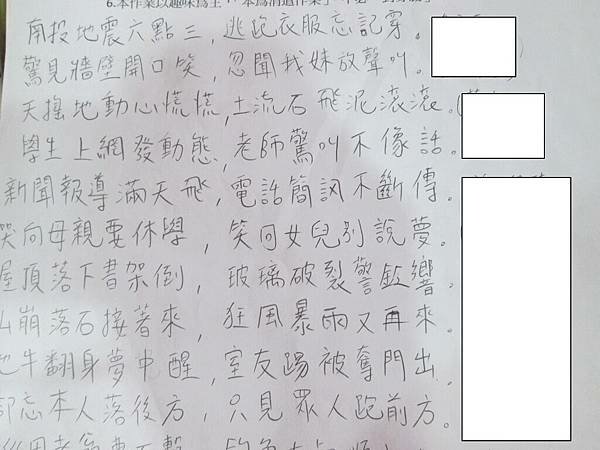 6.本作業以趣味為主
南投地震六點三，逃跑衣服忘記穿。
驚見牆壁開口笑，忽聞找妹放聲叫。
天搖地動心慌慌，土流石飛泥滾滾。
學生上網發動態，老師驚叫不像話。
新聞報導滿天飛，電話簡訊不斷傳。
哭向母親要休學，笑回女兒別說夢。
屋頂落下書架倒，玻璃破裂警鈴響。
山崩落石接著來，狂風暴雨又再來。
地牛翻身夢中醒，室友踢被奪門出。
忘本人落後方，只見眾人跑前方。